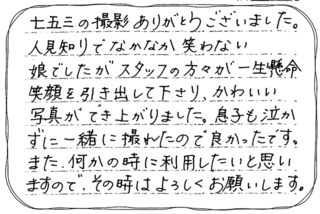 七五三の撮影ありがとうございました。
人見知りでなかなか笑わない
娘でしたがスタッフの方々が一生懸命
笑顔を引き出して下さり、かわいい
写真ができ上がりました。息子も泣か
ずに一緒に撮れたので良かったです。
また、何かの時に利用したいと思い
ますので、その時はよろしくお願いします。